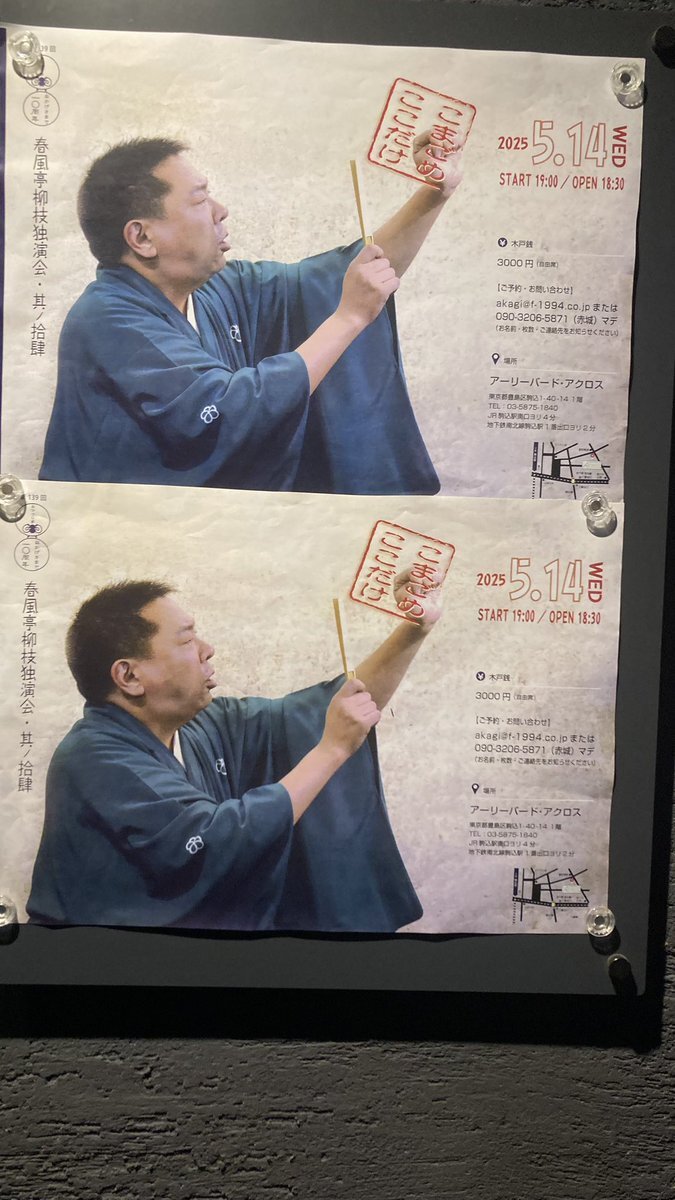 139回
おかげさまで
一〇周年
春風亭柳枝独演会・其ノ拾肆
こまごめ
ここだけ
2025 5.14 WED
START 19:00 / OPEN 18:30
木戸銭
3000円(自由席)
【ご予約・お問い合わせ】
akagi@f-1994.co.jp または
090-3206-5871(赤城)マデ
(お名前・枚数・ご連絡先をお知らせください)
場所
アーリーバード・アクロス
東京都豊島区駒込1-40-14 1階
TEL:03-5875-1840
JR駒込駅南口ヨリ4分
地下鉄南北線駒込駅1番出口ヨリ2分
139回
おかげさまで
一〇周年
春風亭柳枝独演会・其ノ拾肆
こまごめ
ここだけ
2025 5.14 WED
START 19:00 / OPEN 18:30
木戸銭
3000円(自由席)
【ご予約・お問い合わせ】
akagi@f-1994.co.jp または
090-3206-5871(赤城)マデ
(お名前・枚数・ご連絡先をお知らせください)
場所
アーリーバード・アクロス
東京都豊島区駒込1-40-14 1階
TEL:03-5875-1840
JR駒込駅南口ヨリ4分
地下鉄南北線駒込駅1番出口ヨリ2分